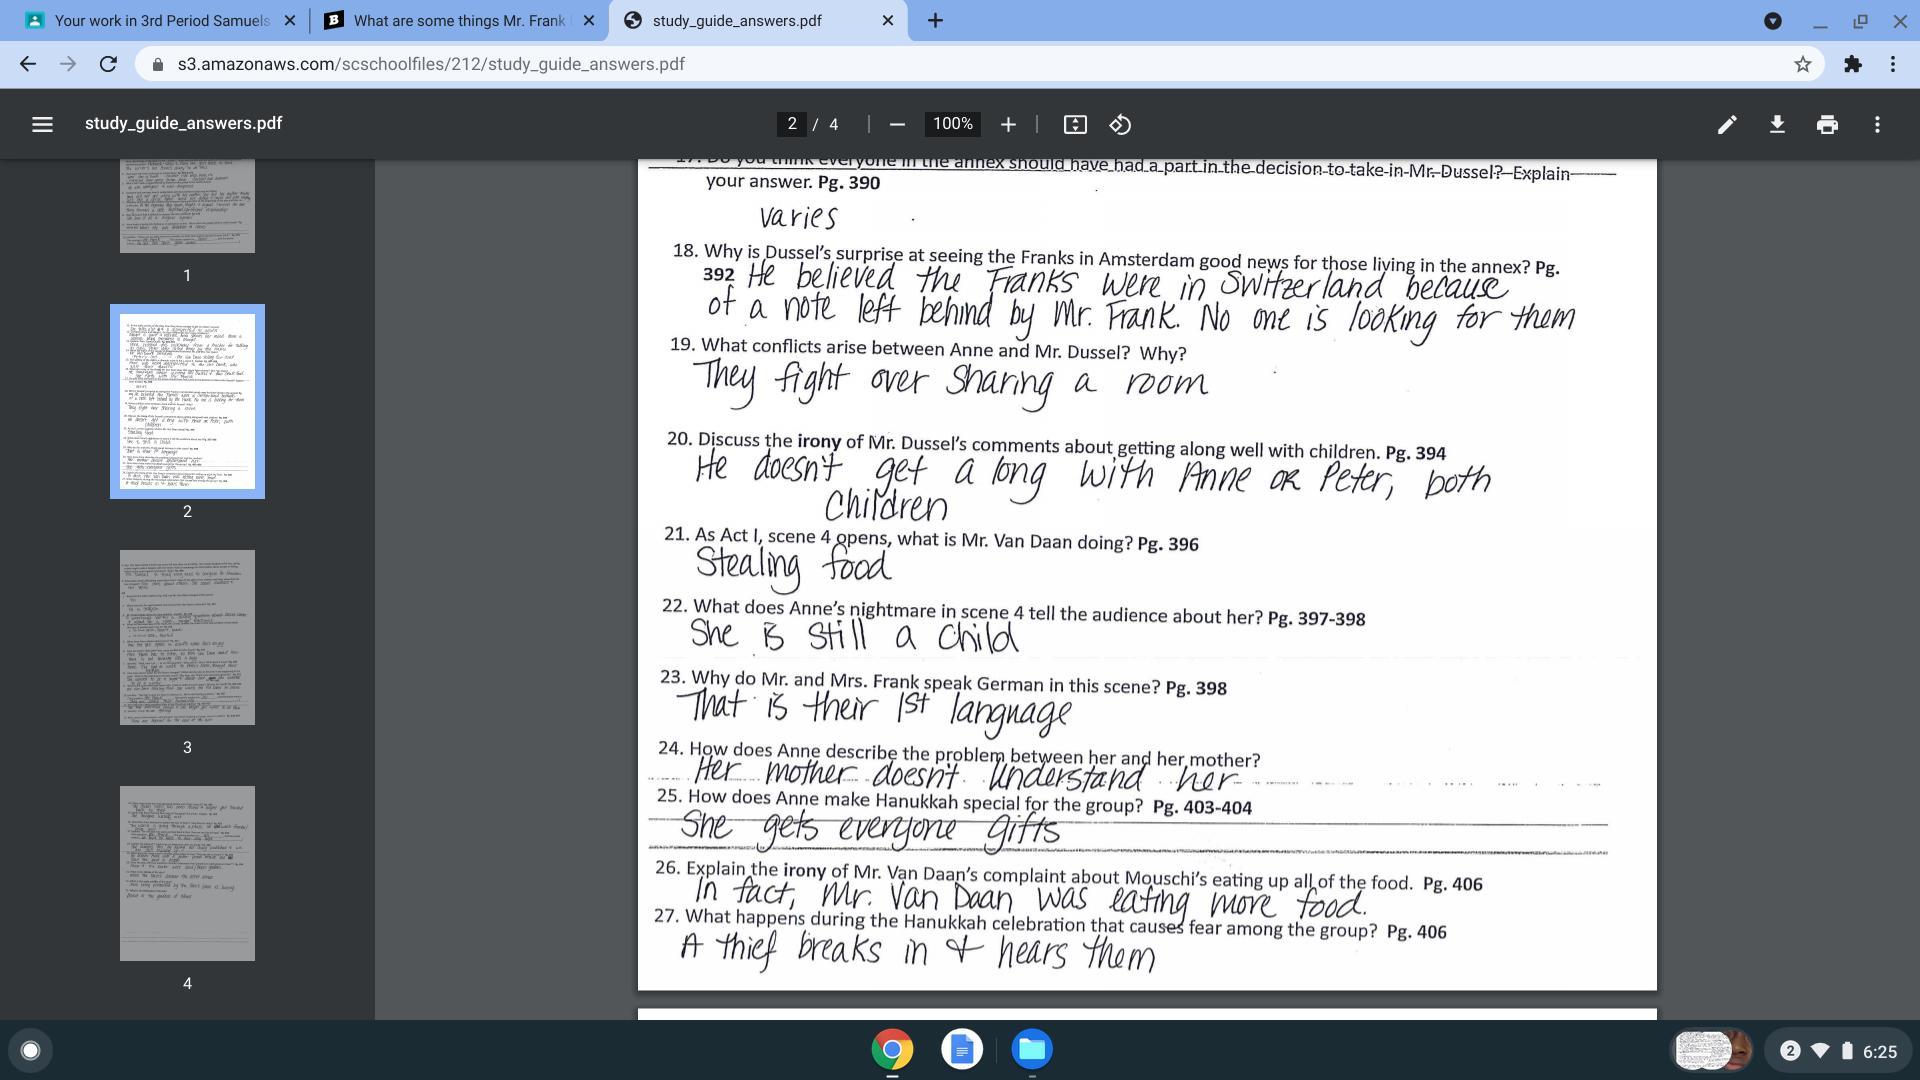 Your work in 3rd Period Samuels
What are some things Mr. Frank
study_guide_answers.pdf
s3.amazonaws.com/scschoolfiles/212/study_guide_answers.pdf
study_guide_answers.pdf
2 / 4
100%
1
2
3
4
17. Do you think everyone in the annex should have had a part in the decision to take in Mr. Dussel? Explain
your answer. Pg. 390
varies
18. Why is Dussel's surprise at seeing the Franks in Amsterdam good news for those living in the annex? Pg.
392 He believed the Franks were in Switzerland because
of a note left behind by Mr. Frank. No one is looking for them
19. What conflicts arise between Anne and Mr. Dussel? Why?
They fight over sharing a room
20. Discuss the irony of Mr. Dussel's comments about getting along well with children. Pg. 394
He doesn't get a long with Anne or Peter, both
Children
21. As Act I, scene 4 opens, what is Mr. Van Daan doing? Pg. 396
Stealing food
22. What does Anne's nightmare in scene 4 tell the audience about her? Pg. 397-398
She is still a child
23. Why do Mr. and Mrs. Frank speak German in this scene? Pg. 398
That is their 1st language
24. How does Anne describe the problem between her and her mother?
Her mother doesn't understand her
25. How does Anne make Hanukkah special for the group? Pg. 403-404
She gets everyone gifts
26. Explain the irony of Mr. Van Daan's complaint about Mouschi's eating up all of the food. Pg. 406
In fact, Mr. Van Daan was eating more food.
27. What happens during the Hanukkah celebration that causes fear among the group? Pg. 406
A thief breaks in + hears them
2
6:25